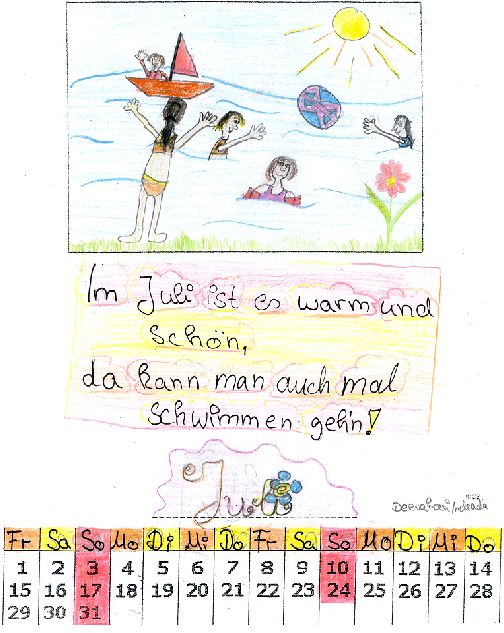 Im Juli ist es warm und
schön,
da kann man auch mal
schwimmen geh'n!
Juli
Fr Sa So Mo Di Mi Do Fr Sa So Mo Di Mi Do
1 2 3 4 5 6 7 8 9 10 11 12 13 14
15 16 17 18 19 20 21 22 23 24 25 26 27 28
29 30 31